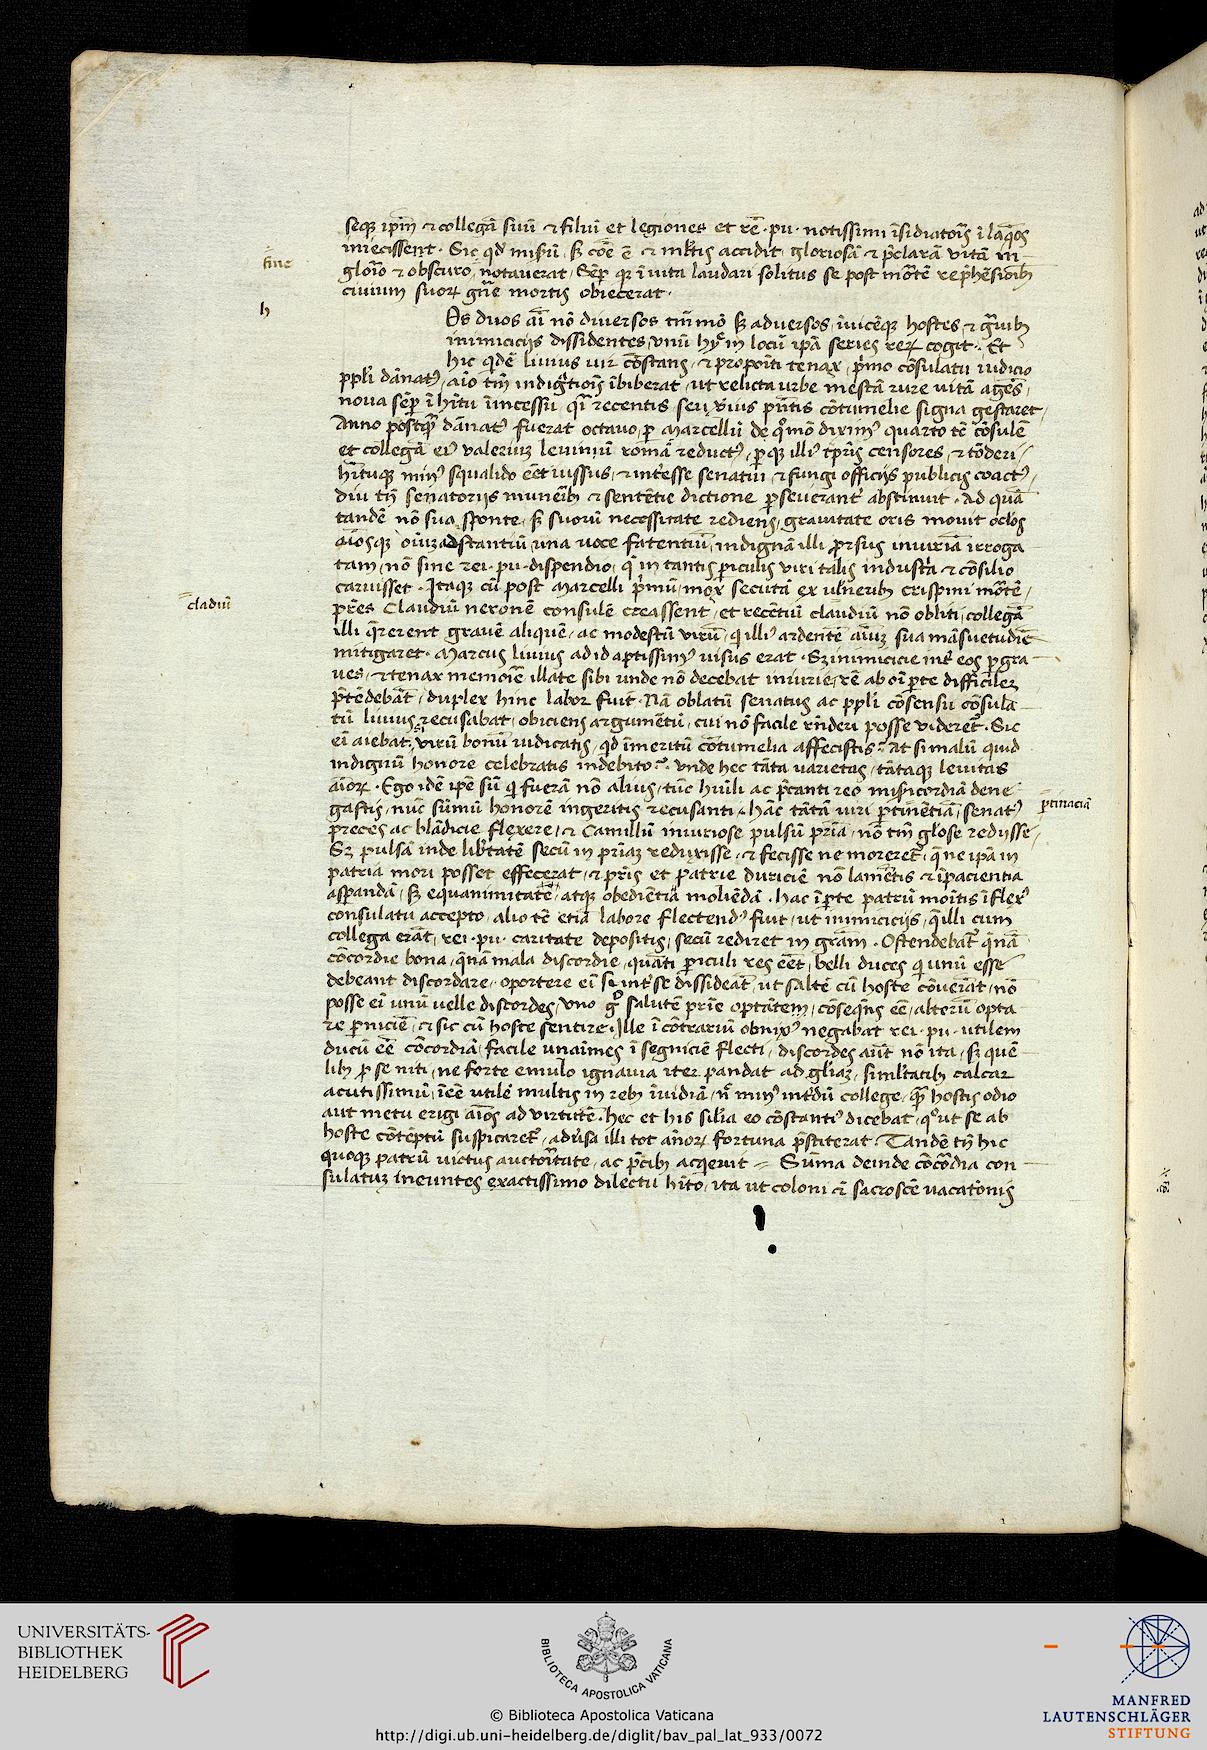 seq̃ ip̃m ⁊ collegã suũ ⁊ filiũ et legiones et rẽ · pu · notissimi ĩsidiatoris ĩ laq̃os
iniecissent · Sic qđ misiũ sꝫ cõe ẽ ⁊ mltis accidit gloriosã ⁊ p̃clarã vitã in
fine
glorio ⁊ obscuro notauerat / Sẽꝑ qꝫ ĩ uita laudari solitus se post mortẽ rep̃hẽsioībꝫ
ciuium suoꝝ gñe mortis obiecerat ·
h
Os duos aĩ nõ diuersos tm̃mõ sꝫ aduersos / ĩuicẽqꝫ hostes ⁊ g̃uibꝫ
inimicicijs dissidentes / vnũ hũc in locũ ipã series reꝝ cogit · Et
hic qdẽ liuius uir cõstans / ⁊ propoĩti tenax / p̃mo cõsulatu iudicio
ppl̃i dãnatꝰ / aĩo tm̃ indig̃tiois ĩbiberat / ut relicta urbe mestã rure uitã agẽs
noua sẽꝑ ĩ hĩtu ĩncessu / q̃i recentis seu uius p̃ntis cõtumelie signa gestaret /
Anno postq̃ dãnatꝰ fuerat octauo / ꝑ Marcellũ de q̊ mõ diximꝰ quarto tẽ cõsulẽ
et collegã eiꝰ valeriuꝫ leuiniũ romã reductꝰ / ꝑ qꝫ illiꝰ tp̃ris censores / ⁊ tõderi /
hĩtuqꝫ minꝰ squalido eẽt iussus / ⁊ inťesse senatui / ⁊ fungi officijs publicis coactꝰ /
diu tñ senatorijs munẽibꝫ ⁊ sentẽtie dictione ꝑseuerantť abstinuit · Ad quã
tandẽ nõ sua sponte / sꝫ suorũ necessitate rediens / grauitate oris mouit oc̃los
aĩosqꝫ oĩuꝫ adstantiũ / una uoce fatentiũ / indignã illi ꝓrsus iniuriã irroga
tam / nõ sine rei · pu · dispendio / q̃ in tantis ꝑiculis viri talis industria ⁊ cõsilio
caruisset · Itaqꝫ cũ post Marcelli p̃mũ / mox secutã ex ul̃neribꝫ crispini mortẽ /
claudiũ
pr̃es Claudiũ neronẽ consulẽ creassent / et recẽtiũ claudiũ nõ obliti / collegã
illi q̃rerent grauẽ aliquẽ / ac modestũ virũ / q illiꝰ ardentẽ aĩuꝫ sua mãsuetudiẽ
mitigaret · Marcus liuius ad id aptissimꝰ uisus erat · Sꝫ inimicicie inť eos ꝑ gra
ues / ⁊ tenax memorie illate sibi unde nõ decebat iniurie / rẽ ab oĩ ꝑte difficileꝫ
p̃tẽdebãt / duplex hinc labor fuit · Nã oblatũ senatus ac ppl̃i cõsensu cõsula
tũ liuius recusabat / obiciens argumẽtũ / cui nõ facile rñderi posse videret̃ · Sic
eĩ aiebat / si virũ bonũ iudicatis / qđ ĩmeritũ cõtumelia affecistis ? At si malũ quid
indignũ honore celebratis indebito ? · Vnde hec tãta uarietas / tãtaqꝫ leuitas
aĩoꝝ · Ego idẽ ipẽ sũ q fuerã nõ alius / tũc hũili ac p̃canti reo misicordiã dene
gastis / nũc sũmũ honorẽ ingeritis recusanti / Hãc tãtã uiri ꝑtinẽtiã / senatꝰ
ꝑtinaciã
preces ac blãdicie flexere / ⁊ Camillũ iniuriose pulsũ pr̃iã / nõ tm̃ gl̃ose redijsse /
Sꝫ pulsã inde lib̃tatẽ secũ in pr̃iaꝫ reduxisse / ⁊ fecisse ne moreret̃ / q̃ ne ipã in
patria mori posset effecerat / ⁊ pr̃is et patrie duriciẽ nõ lamẽtis ⁊ ĩpacientia
asꝑandã / sꝫ equanimitate / atqꝫ obediẽtiã moliẽdã · Hac ĩ ꝑte patrũ moĩtis ĩflexꝰ
consulatu accepto / alio tẽ etiã labore flectendꝰ fuit / ut inimicicijs / q̃ illi cum
collega erãt / rei · pu · caritate depositis / secũ rediret in gr̃am · Ostendebãt̃ q̃nã
cõcordie bona / q̃nã mala discordie / quãti ꝑiculi res eẽt / belli duces q unũ esse
debeant discordare / oportere eĩ si inťse dissideãt / ut saltẽ cũ hoste cõueĩãt / nõ
posse eĩ unũ uelle discordes / vno g̊ salutẽ pr̃ie optãtem / cõseq̃ns eẽ / alterũ opta
re ꝑniciẽ / ⁊ sic cũ hoste sentire · Ille ĩ cõtrariũ obnixꝰ negabat rei · pu · utilem
ducũ eẽ cõcordiã / facile unaĩmes ĩ segniciẽ flecti / discordes aũt nõ ita / sꝫ quẽ
libꝫ ꝑ se niti / ne forte emulo ignauia iter pandat ad gl̃iaꝫ / siml̃tatibꝫ calcar
acutissimũ / ĩeẽ utilẽ multis in rebꝫ ĩuidiã / ñ minꝰ inťdũ college / q̃ hostis odio
aut metu erigi aĩos ad virtutẽ · Hec et his sil̃ia eo cõstantiꝰ dicebat / q̊ ut se ab
hoste cõtẽptũ suspicaret̃ / adũsa illi tot añoꝝ fortuna p̃stiterat · Tandẽ tñ hic
quoqꝫ patrũ uictus auctoritate / ac p̃cibꝫ acq̃euit = Sũma deinde cõcordia con
sulatuꝫ ineuntes exactissimo dilectu hĩto / ita ut coloni ⁊ sacroscẽ uacatiõis
UNIVERSITÄTS-
BIBLIOTHEK
HEIDELBERG
BIBLIOTECA APOSTOLICA VATICANA
© Biblioteca Apostolica Vaticana
http://digi.ub.uni-heidelberg.de/diglit/bav_pal_lat_933/0072
MANFRED
LAUTENSCHLÄGER
STIFTUNG